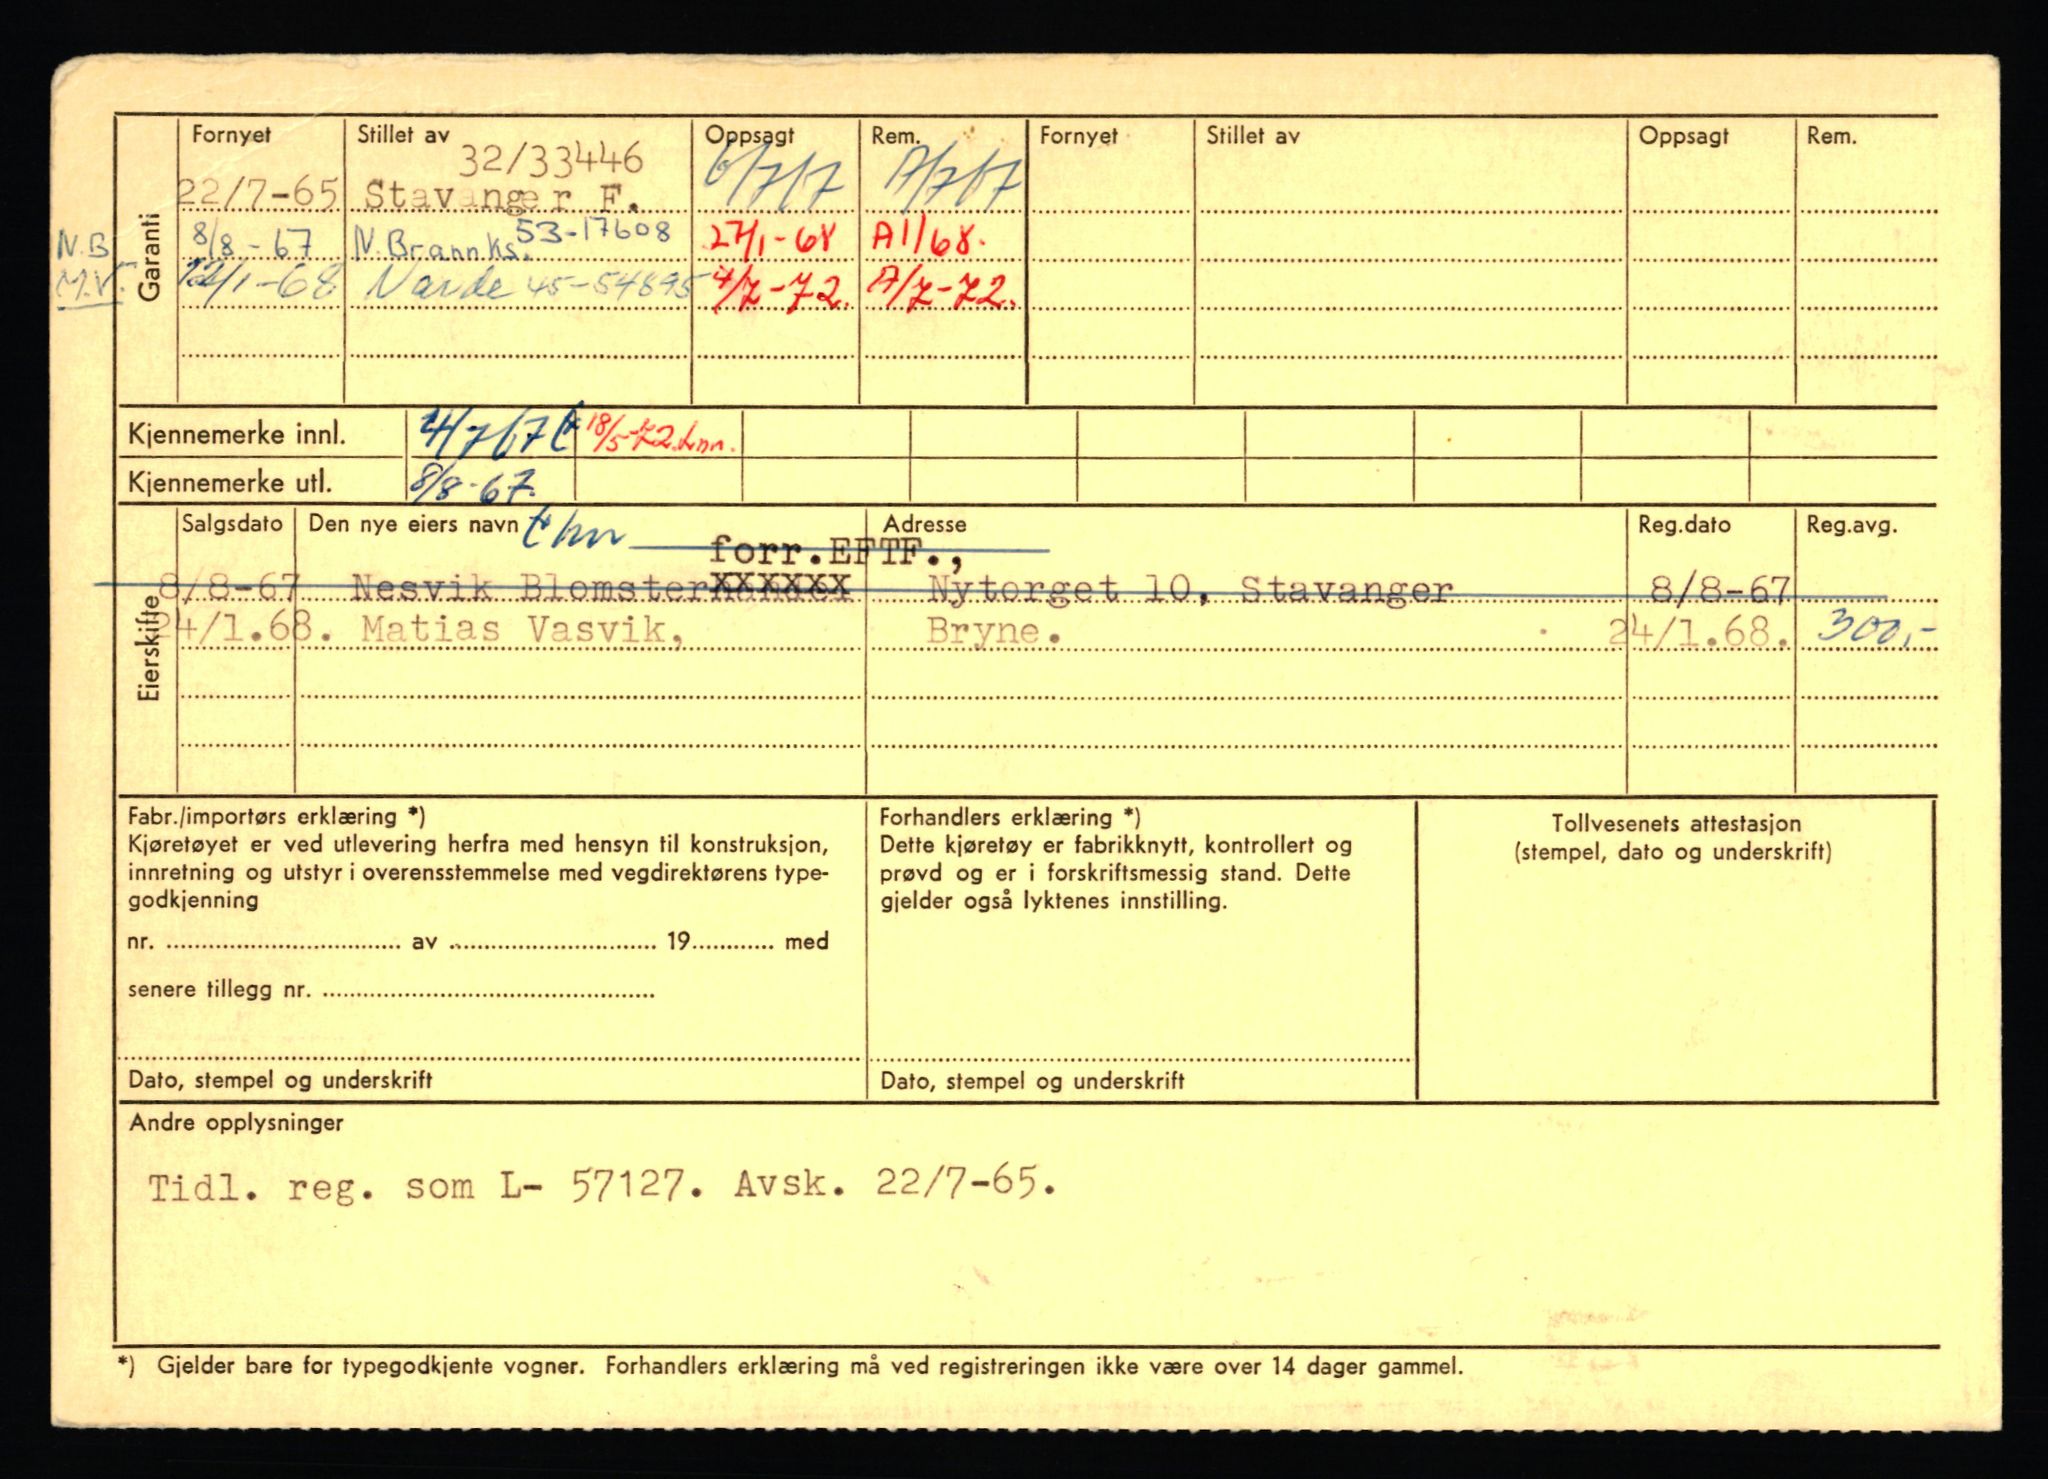 Garanti
Fornyet Stillet av Oppsagt Rem. Fornyet Stillet av Oppsagt Rem.
32/33446
22/7-65 Stavanger F. 6/7/67 A/7/67
N.B 8/8-67 N.Brannks. 53-17608 27/1-68 A1/68.
M.V. /1-68 Norde 45-54895 4/7-72. A/7-72.
Kjennemerke innl. 4/7/67 18/5-72.
Kjennemerke utl. 8/8-67.
Eierskifte
Salgsdato Den nye eiers navn Adresse Reg.dato Reg.avg.
forr.EFTF.,
8/8-67 Nesvik Blomster Nytorget 10, Stavanger 8/8-67
24/1.68. Matias Vasvik, Bryne. 24/1.68. 300,-
Fabr./importørs erklæring *)
Kjøretøyet er ved utlevering herfra med hensyn til konstruksjon,
innretning og utstyr i overensstemmelse med vegdirektørens type-
godkjenning
nr. .......... av .......... 19.......... med
senere tillegg nr. ..........
Dato, stempel og underskrift
Forhandlers erklæring *)
Dette kjøretøy er fabrikknytt, kontrollert og
prøvd og er i forskriftsmessig stand. Dette
gjelder også lyktenes innstilling.
Dato, stempel og underskrift
Tollvesenets attestasjon
(stempel, dato og underskrift)
Andre opplysninger
Tidl. reg. som L- 57127. Avsk. 22/7-65.
*) Gjelder bare for typegodkjente vogner. Forhandlers erklæring må ved registreringen ikke være over 14 dager gammel.